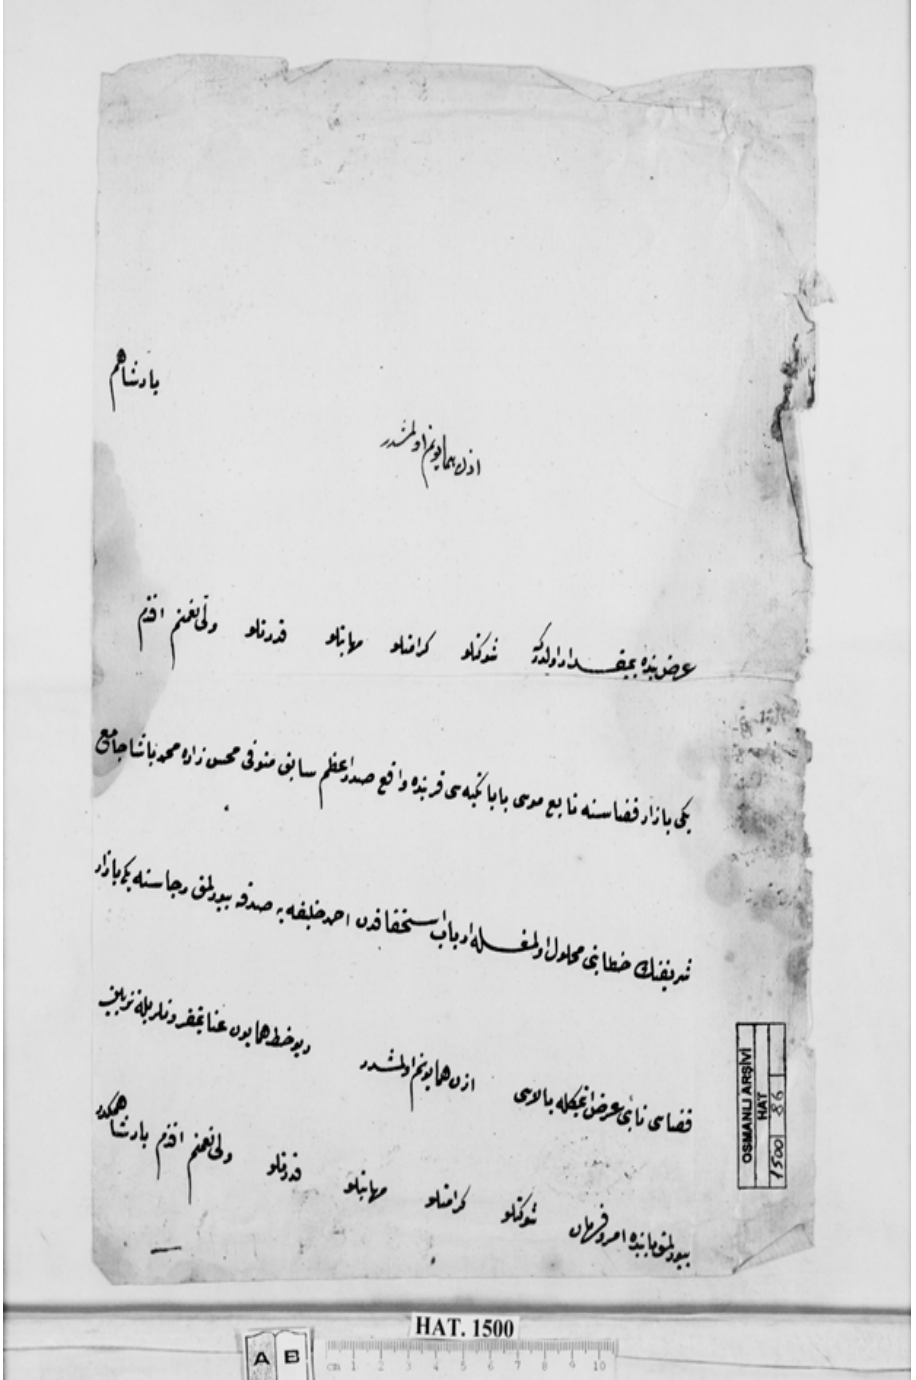 پادشاهم
اذن همایونم اولمشدر
عرض بنده بیمقدار اولدر که شوکتلو کرامتلو مهابتلو قدرتلو ولی نعمتم افندم
یکی بازار قضاسنه تابع موسی بابا تکیه سی قربنده واقع صدر اعظم سابق متوفی محسن زاده محمد پاشا جامع
شریفنک خطابتی محلول اولمغله ارباب استحقاقدن احمد خلیفه یه صدقه بیورلمق رجاسنه یکی بازار
قضاسی نائبی عرض ایتمکله بالاسی اذن همایونم اولمشدر دیو خط همایون عنایتمقرونلریله تزیین
بیورلمق بابنده امر و فرمان شوکتلو کرامتلو مهابتلو قدرتلو ولی نعمتم افندم پادشاهمکدر
OSMANLI ARŞİVİ
HAT
1500 86
HAT. 1500
A B
cm 1 2 3 4 5 6 7 8 9 10